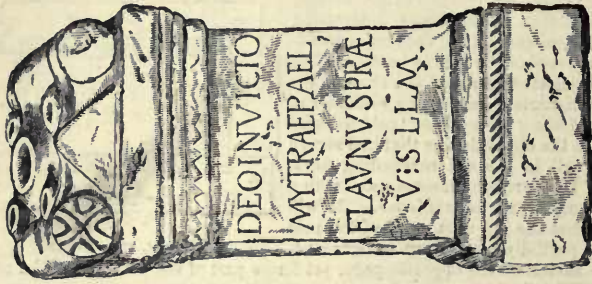 DEOINVICTO
MYTRAEPAEL,
FLAVNVSPRÆ
V:S LLM.